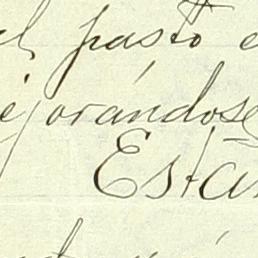 el pasto e
ejorándose
Está